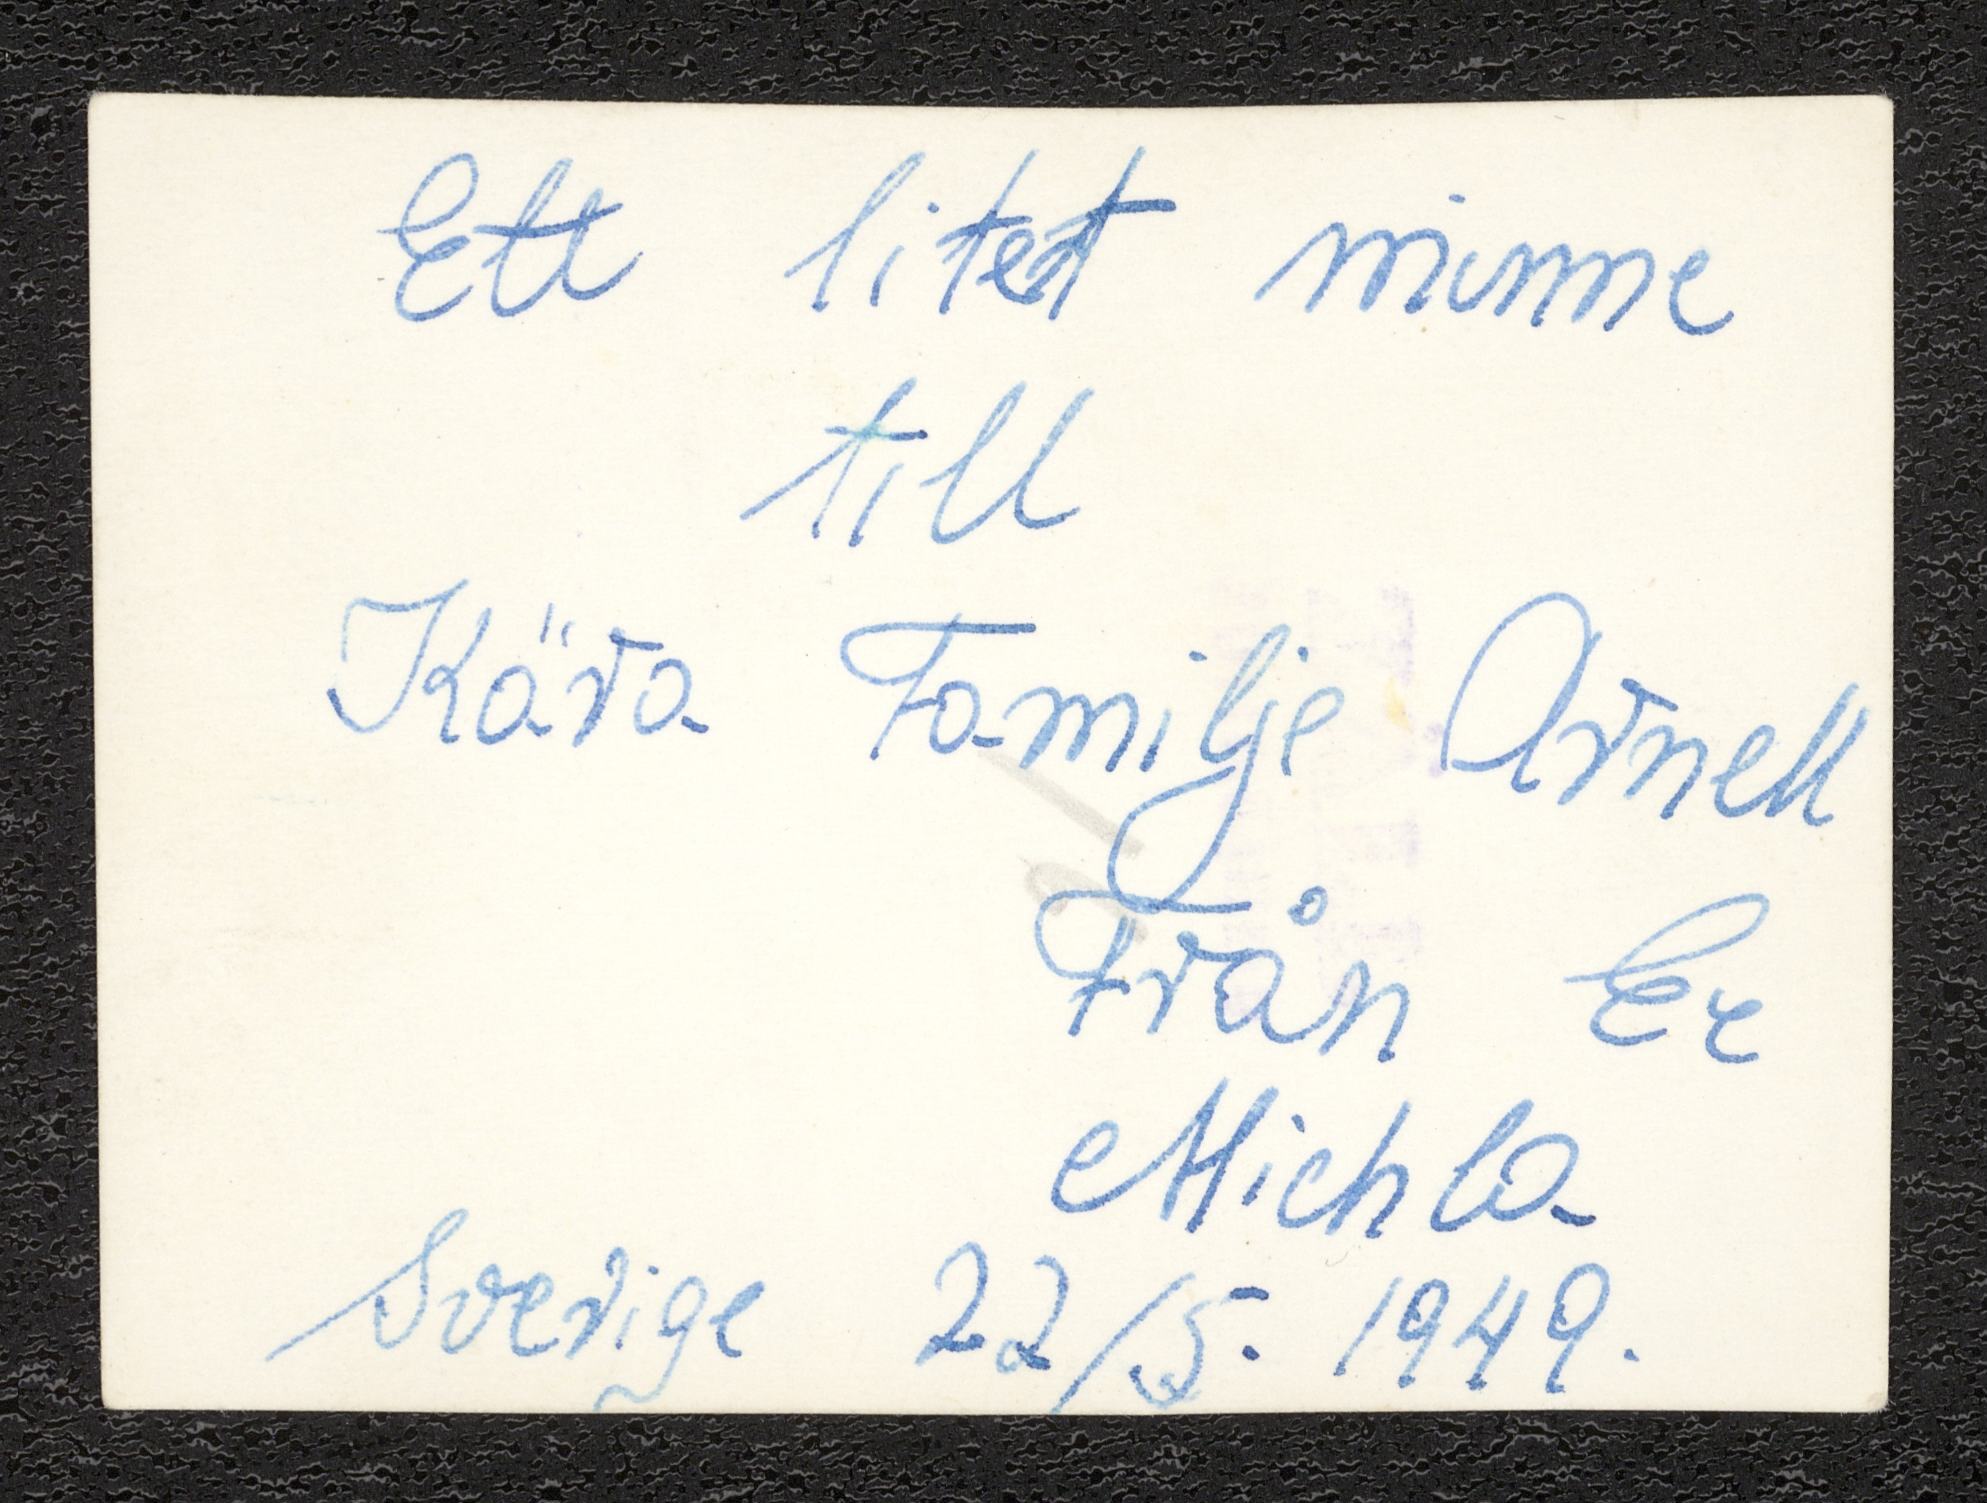 Ett litet minne
till
Kära Familje Arnell
Från Er
Michla
Sverige 22/5. 1949.